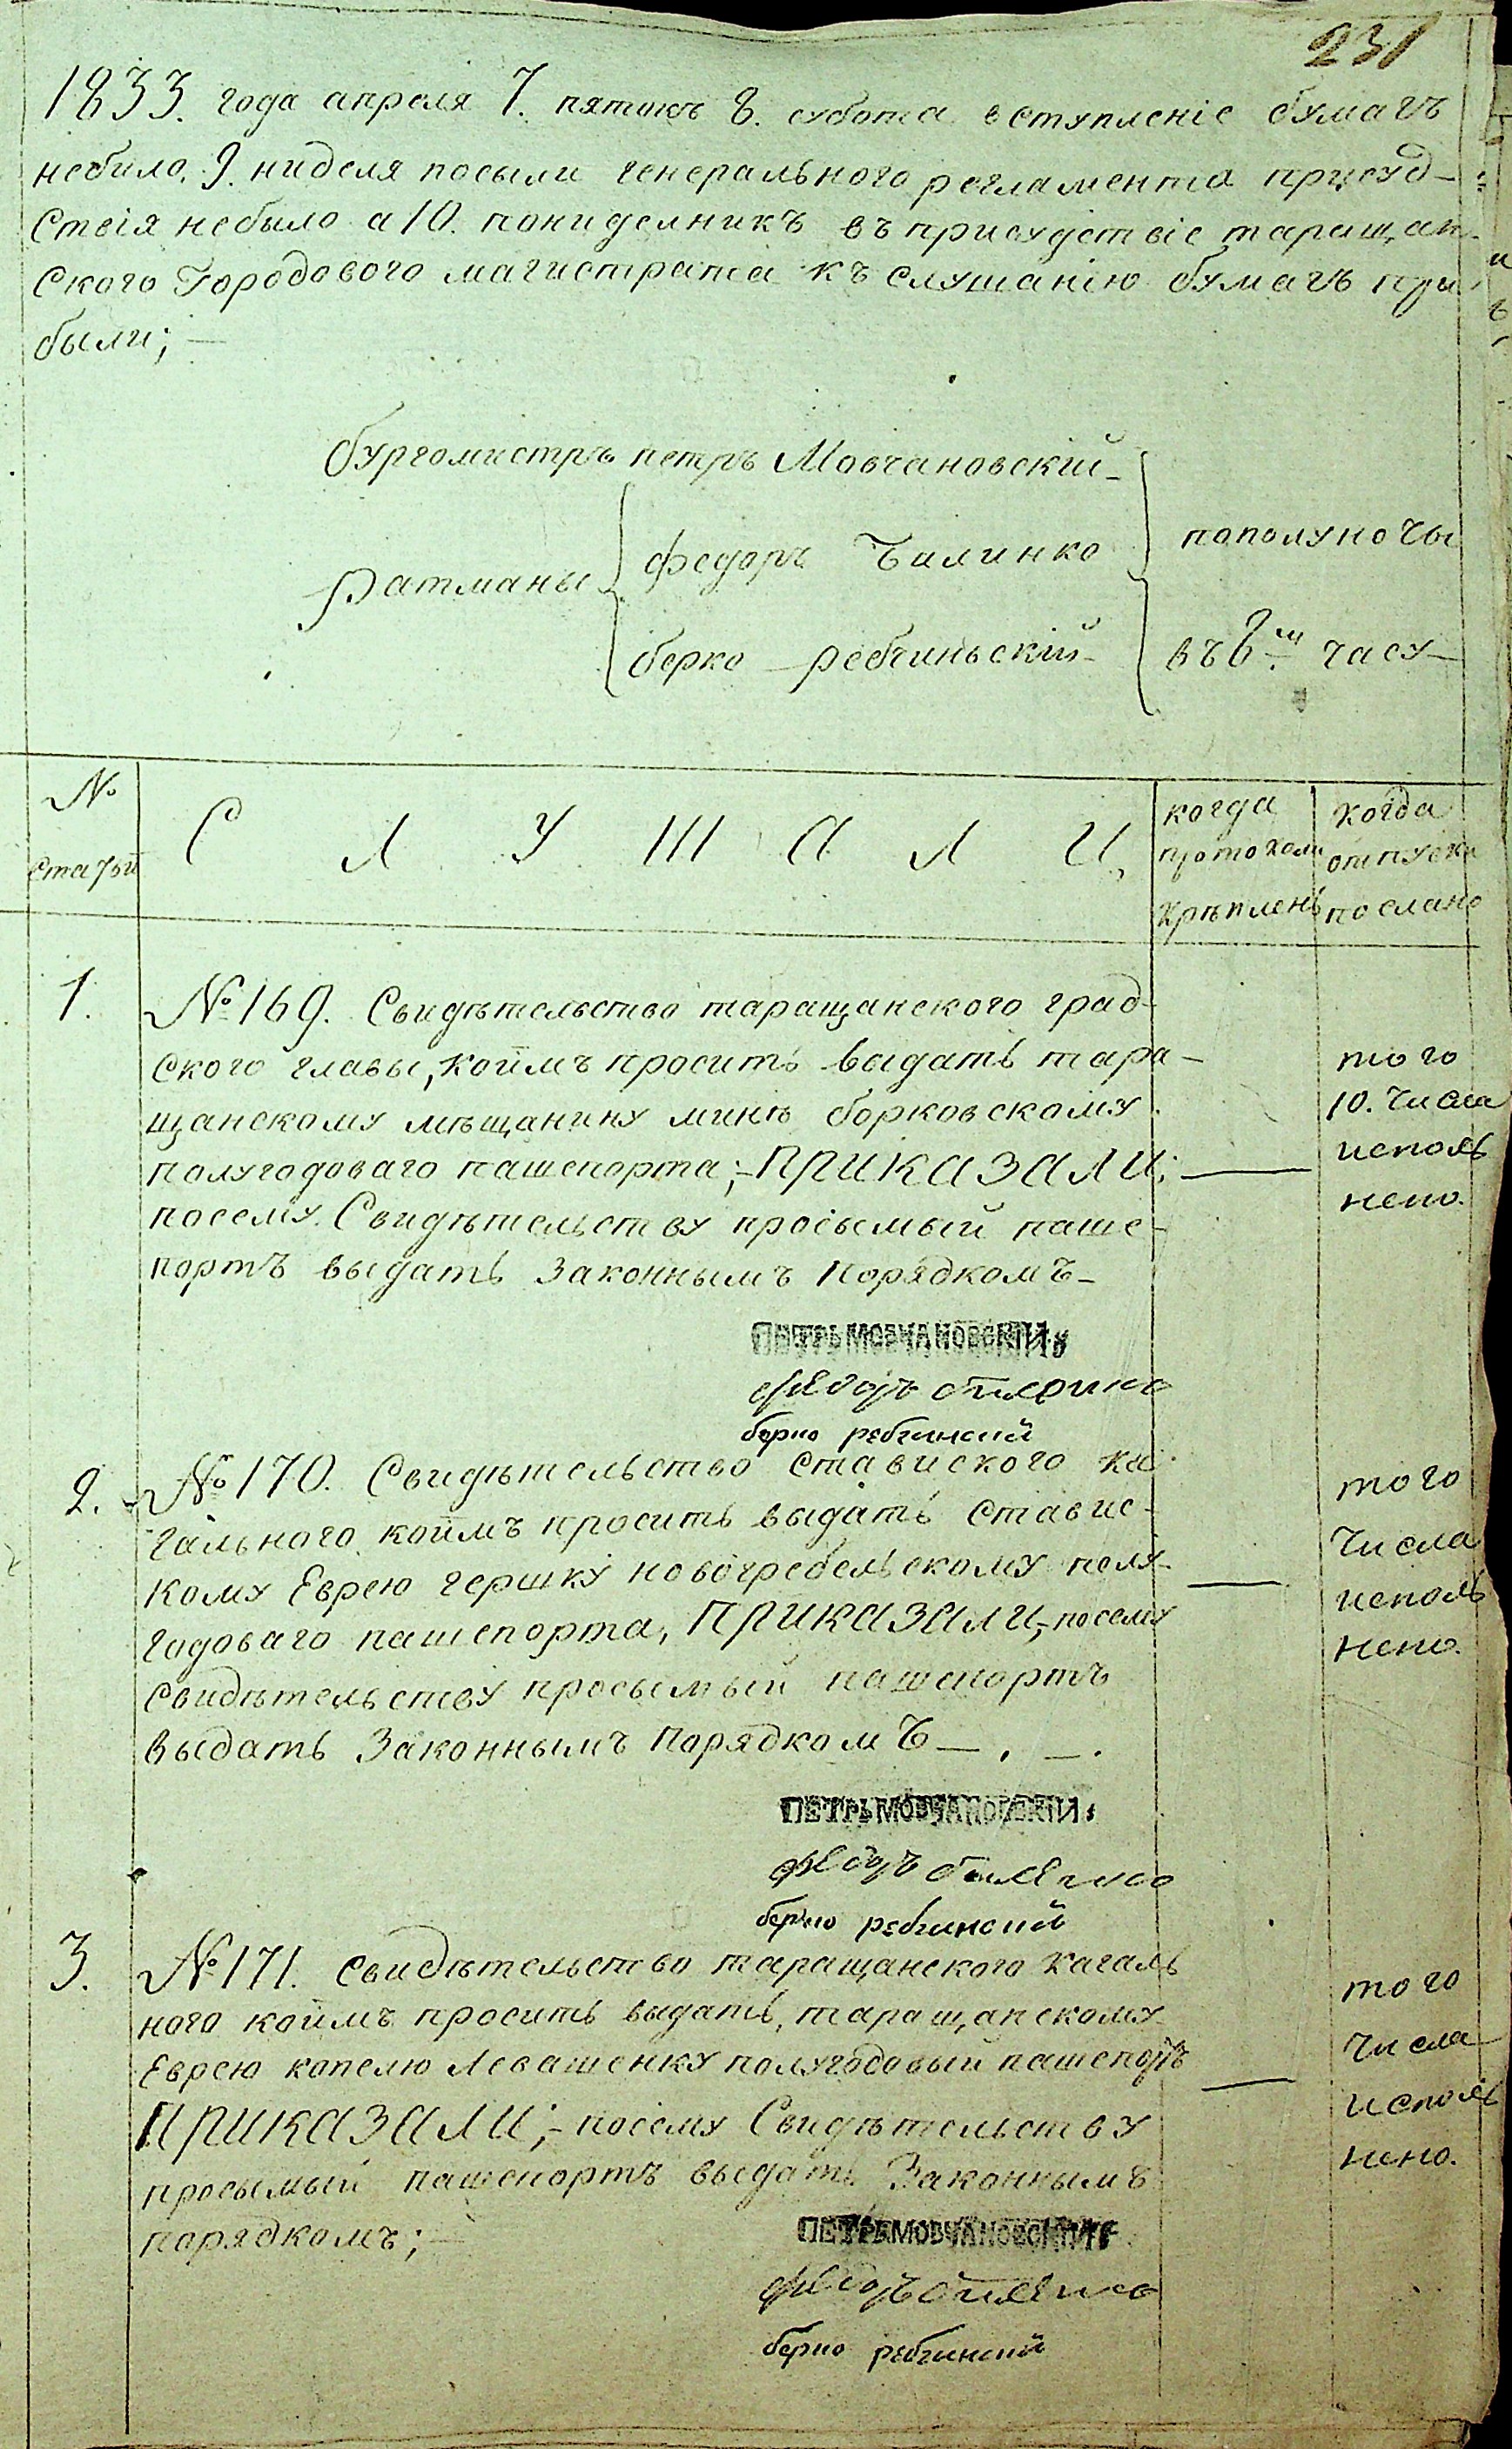 231
1833. года апреля 7. пятокъ 8. субота вступленіе бумагъ
небило, 9. ниделя посыли генерального регламента присуд-
ствія небыло а 10. понидельникъ въ присудствіе таращан-
ского Городового магистрата къ слушанію бумагъ при
были;
бургомистръ петръ Мовчановскій
федоръ Билинко
пополуночы
Ратманы
берко ребчиньскій
въ 8м. часу
№ статьи
С Л У Ш А Л И,
когда протокол крѣпленъ
когда отпуски послано
1.
№ 169. Свидѣтельство таращанского град-
ского главы, коимъ просить выдать тара-
щанскому мѣщанину минѣ борковскому
полугодоваго пашепорта; ПРИКАЗАЛИ:
посему Свидѣтельству просымый паше-
портъ выдать Законнымъ Порядкомъ
того
10. Числа
исполь
нено.
ПЕТРЪ МОВЧАНОВСКІЙ
федоръ билинко
берко ребчинский
2.
№ 170. Свидѣтельство ставиского ка-
гального коимъ просить выдать ставис-
кому Еврею гершку новогребельскому полу-
годоваго пашепорта, ПРИКАЗАЛИ, посему
Свидѣтельству просымый пашепортъ
выдать Законнымъ Порядкомъ
того
Числа
исполь
нено.
ПЕТРЪ МОВЧАНОВСКІЙ
федоръ билинко
берко ребчинский
3.
№ 171. Свидѣтельство таращанского кагаль
ного коимъ просить выдать, таращанскому
Еврею копелю Левашенку полугодовый пашепортъ
ПРИКАЗАЛИ; посему Свидѣтельству
просымый пашепортъ выдать Законнымъ
порядкомъ;
того
Числа
исполь
нено.
ПЕТРЪ МОВЧАНОВСКІЙ
федоръ билинко
берко ребчинский